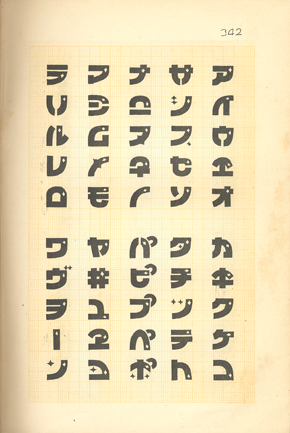 342
アイウエオ
カキクケコ
サシスセソ
タチツテト
ナニヌネノ
パピプペポ
マミムメモ
ヤヰユヱヨ
ラリルレロ
ワヴヲーン